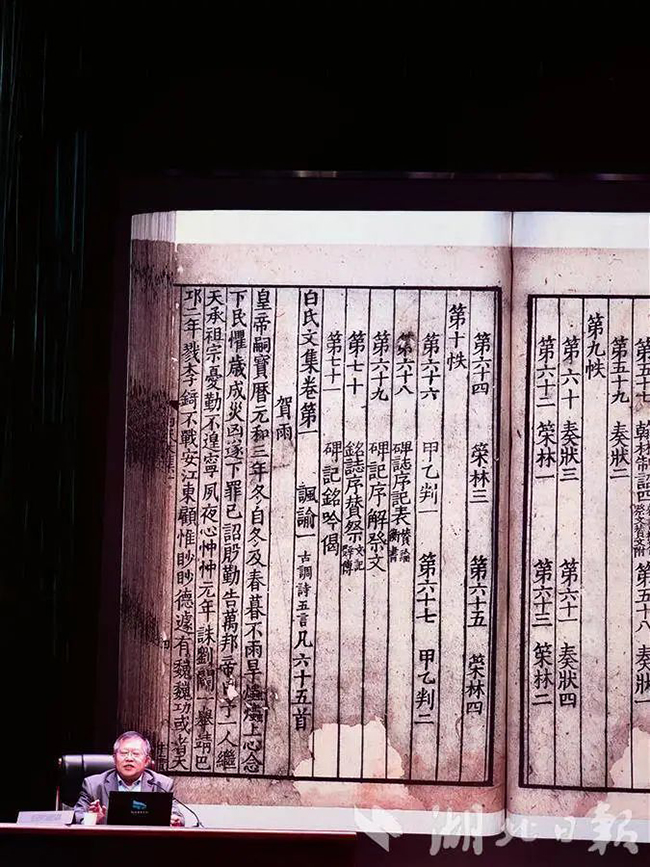 第五十七 翰林制詔四 第五十八
第五十九 奏狀二
第九帙
第六十 奏狀三 第六十一 奏狀四
第六十二 策林一 第六十三 策林二
第六十四 策林三 第六十五 策林四
第十帙
第六十六 甲乙判一 第六十七 甲乙判二
第六十八 碑誌序記表讚論衡書
第六十九 碑記序解祭文
第七十 銘誌序贊祭文記辭傳
第七十一 碑記銘吟偈
白氏文集卷第一 諷諭一 古調詩五言 凡六十五首
賀雨
皇帝嗣寶曆元和三年冬自冬及春暮不雨旱爞爞上心念
下民懼歲成災凶遂下罪己詔殷勤告萬邦帝曰予一人繼
天承祖宗憂勤不遑寧夙夜心忡忡元年誅劉闢一舉靖巴
邛二年戮李錡不戰安江東顧惟眇眇德遽有巍巍功或者天
湖北日報